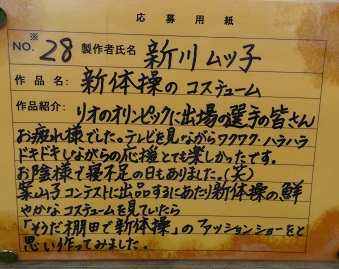 応募用紙
※
NO. 28 製作者氏名 新川ムツ子
作品名: 新体操の コスチューム
作品紹介: リオのオリンピックに出場の選手の皆さん
お疲れ様でした。テレビを見ながらワクワク・ハラハラ
ドキドキしながらの応援とても楽しかったです。
お陰様で寝不足の日もありました。(笑)
案山子コンテストに出品するにあたり新体操の鮮
やかなコスチュームを見ていたら
「そうだ棚田で新体操」のファッションショーをと
思い作ってみました。